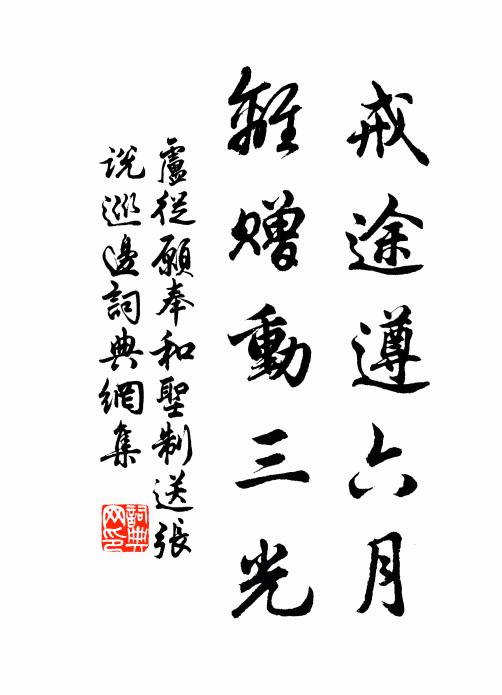 戒途遵六月
離贈動三光
盧從願奉和聖制送張
說巡邊詞典網集
詞典
网印